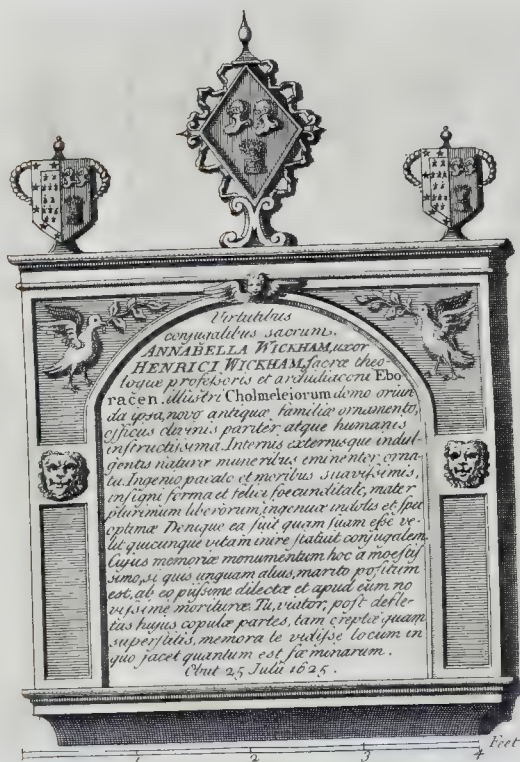 Virtutibus
conjugalibus sacrum.
ANNABELLA WICKHAM, uxor
HENRICI WICKHAM, sacræ theo-
logiæ professoris et archidiaconi Ebo
račen. illustri Cholmeleiorum domo oriun
da ipsa, novo antiquæ familiæ ornamento,
officiis divinis pariter atque humanis
instructissima. Internis externisque indul-
gentis naturæ muneribus eminenter orna-
ta. Ingenio parato et moribus suavissimis,
insigni forma et felici foecunditate, mater
plurimum liberorum, ingenuæ indolis et spei
optimæ Denique ea fuit quam suam esse ve-
lit quicunque vitam inire statuit conjugalem.
Cujus memoriæ monumentum hoc a moestis
simo, si quis unquam alius, marito positum
est, ab eo piissime dilectæ et apud eum no
vissime morituræ. Tu, viator, post defle-
tas hujus copulæ partes, tam ereptæ quam
superstitis, memora te vidisse locum in
quo jacet quantum est fæminarum.
Obiit 25 Julii 1625.
1 2 3 4 Feet